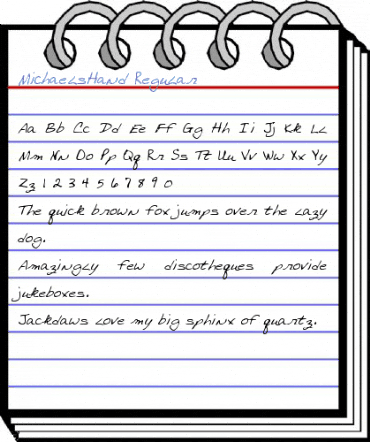 MichaelsHand Regular
Aa Bb Cc Dd Ee Ff Gg Hh Ii Jj Kk Ll
Mm Nn Oo Pp Qq Rr Ss Tt Uu Vv Ww Xx Yy
Zz 1 2 3 4 5 6 7 8 9 0
The quick brown fox jumps over the lazy
dog.
Amazingly few discotheques provide
jukeboxes.
Jackdaws love my big sphinx of quartz.